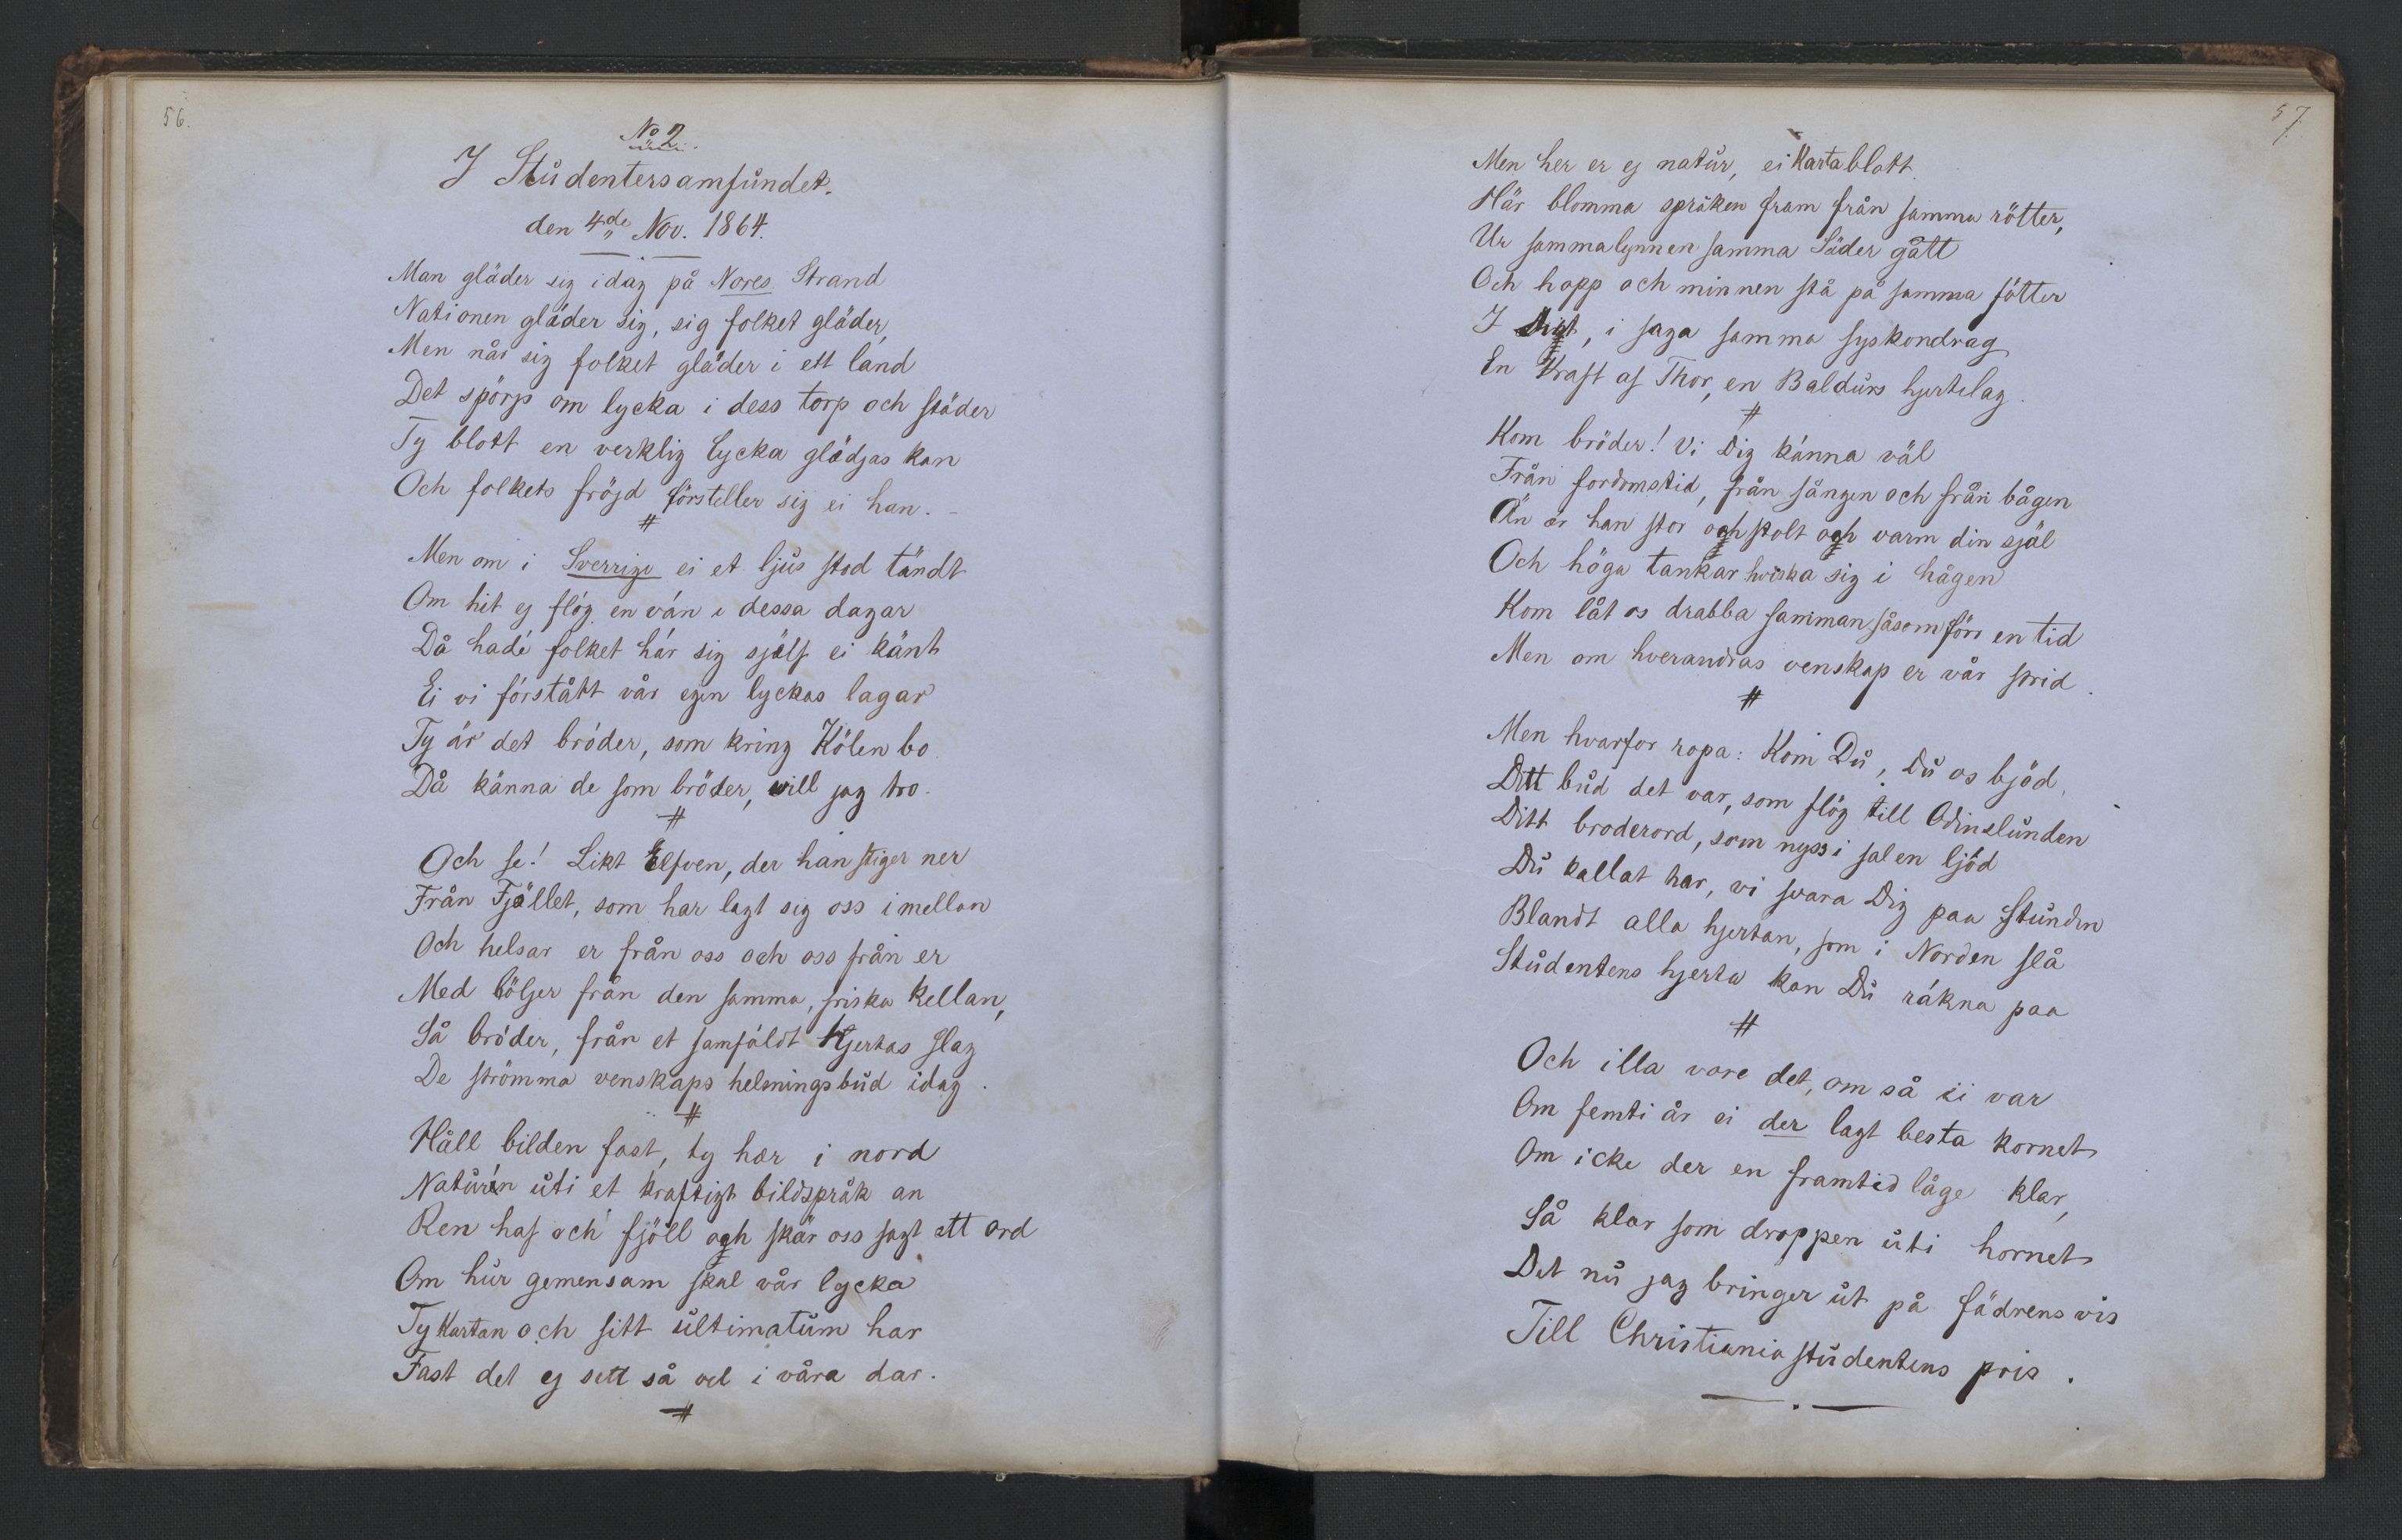 56.
No 2
I Studentersamfundet.
den 4de Nov. 1864.
Man gläder sig idag på Nores Strand
Nationen gläder sig, sig folket gläder,
Men når sig folket gläder i ett land
Det spörjs om lycka i dess torp och städer
Ty blott en verklig lycka glädjas kan
Och folkets fröjd försteller sig ei han. -
#
Men om i Sverrige ei et ljus stod tändt
Om hit ej flög en vän i dessa dagar
Då hade folket här sig sjelf ei känt
Ei vi förstått vår egen lyckas lagar
Ty är det bröder, som kring Kölen bo
Då känna de som bröder, vill jag tro.
#
Och se! Likt Elfven, der han stiger ner
Från Fjället, som har lagt sig oss imellan
Och helsar er från oss och oss från er
Med böljer från den samma, friska kellan,
Så bröder, från et samfäldt Hjertas slag
De strömma venskaps helsningsbud idag.
#
Håll bilden fast, ty hær i nord
Naturen uti et kraftigt bildspråk an
Ren haf och fjöll och skär oss sagt ett ord
Om hur gemensam skal vår lycka
Ty Kartan och sitt ultimatum har
Fast det ej sett så vel i våra dar.
#
57.
Men her er ej natur, ei Karta blott.
Här blomma språken fram från samma rötter,
Ur samma lynnen samma Säder gått
Och hopp och minnen stå på samma fötter
I , i saga samma syskondrag
En Kraft af Thor, en Baldurs hjertelag.
#
Kom bröder! Vi Dig känna väl
Från fordomstid, från sången och från bågen
Än är han stor och stolt och varm din själ
Och höga tankar hviska sig i hågen
Kom låt os drabba samman såsom förr en tid
Men om hverandras venskap er vår strid.
#
Men hvarfor ropa: Kom Du, Du os bjöd,
Ditt bud det var, som flög till Odinslunden
Ditt broderord, som nyss i salen ljöd
Du kallat har, vi svara Dig paa Stunden
Blandt alla hjertan, som i Norden slå
Studentens hjerta kan Du räkna paa
#
Och illa vore det, om så ei var
Om femti år ei der lagt besta kornet
Om icke der en framtid låge klar,
Så klar som droppen uti hornet
Det nu jag bringer ut på fädrens vis
Till Christiania studentens pris.